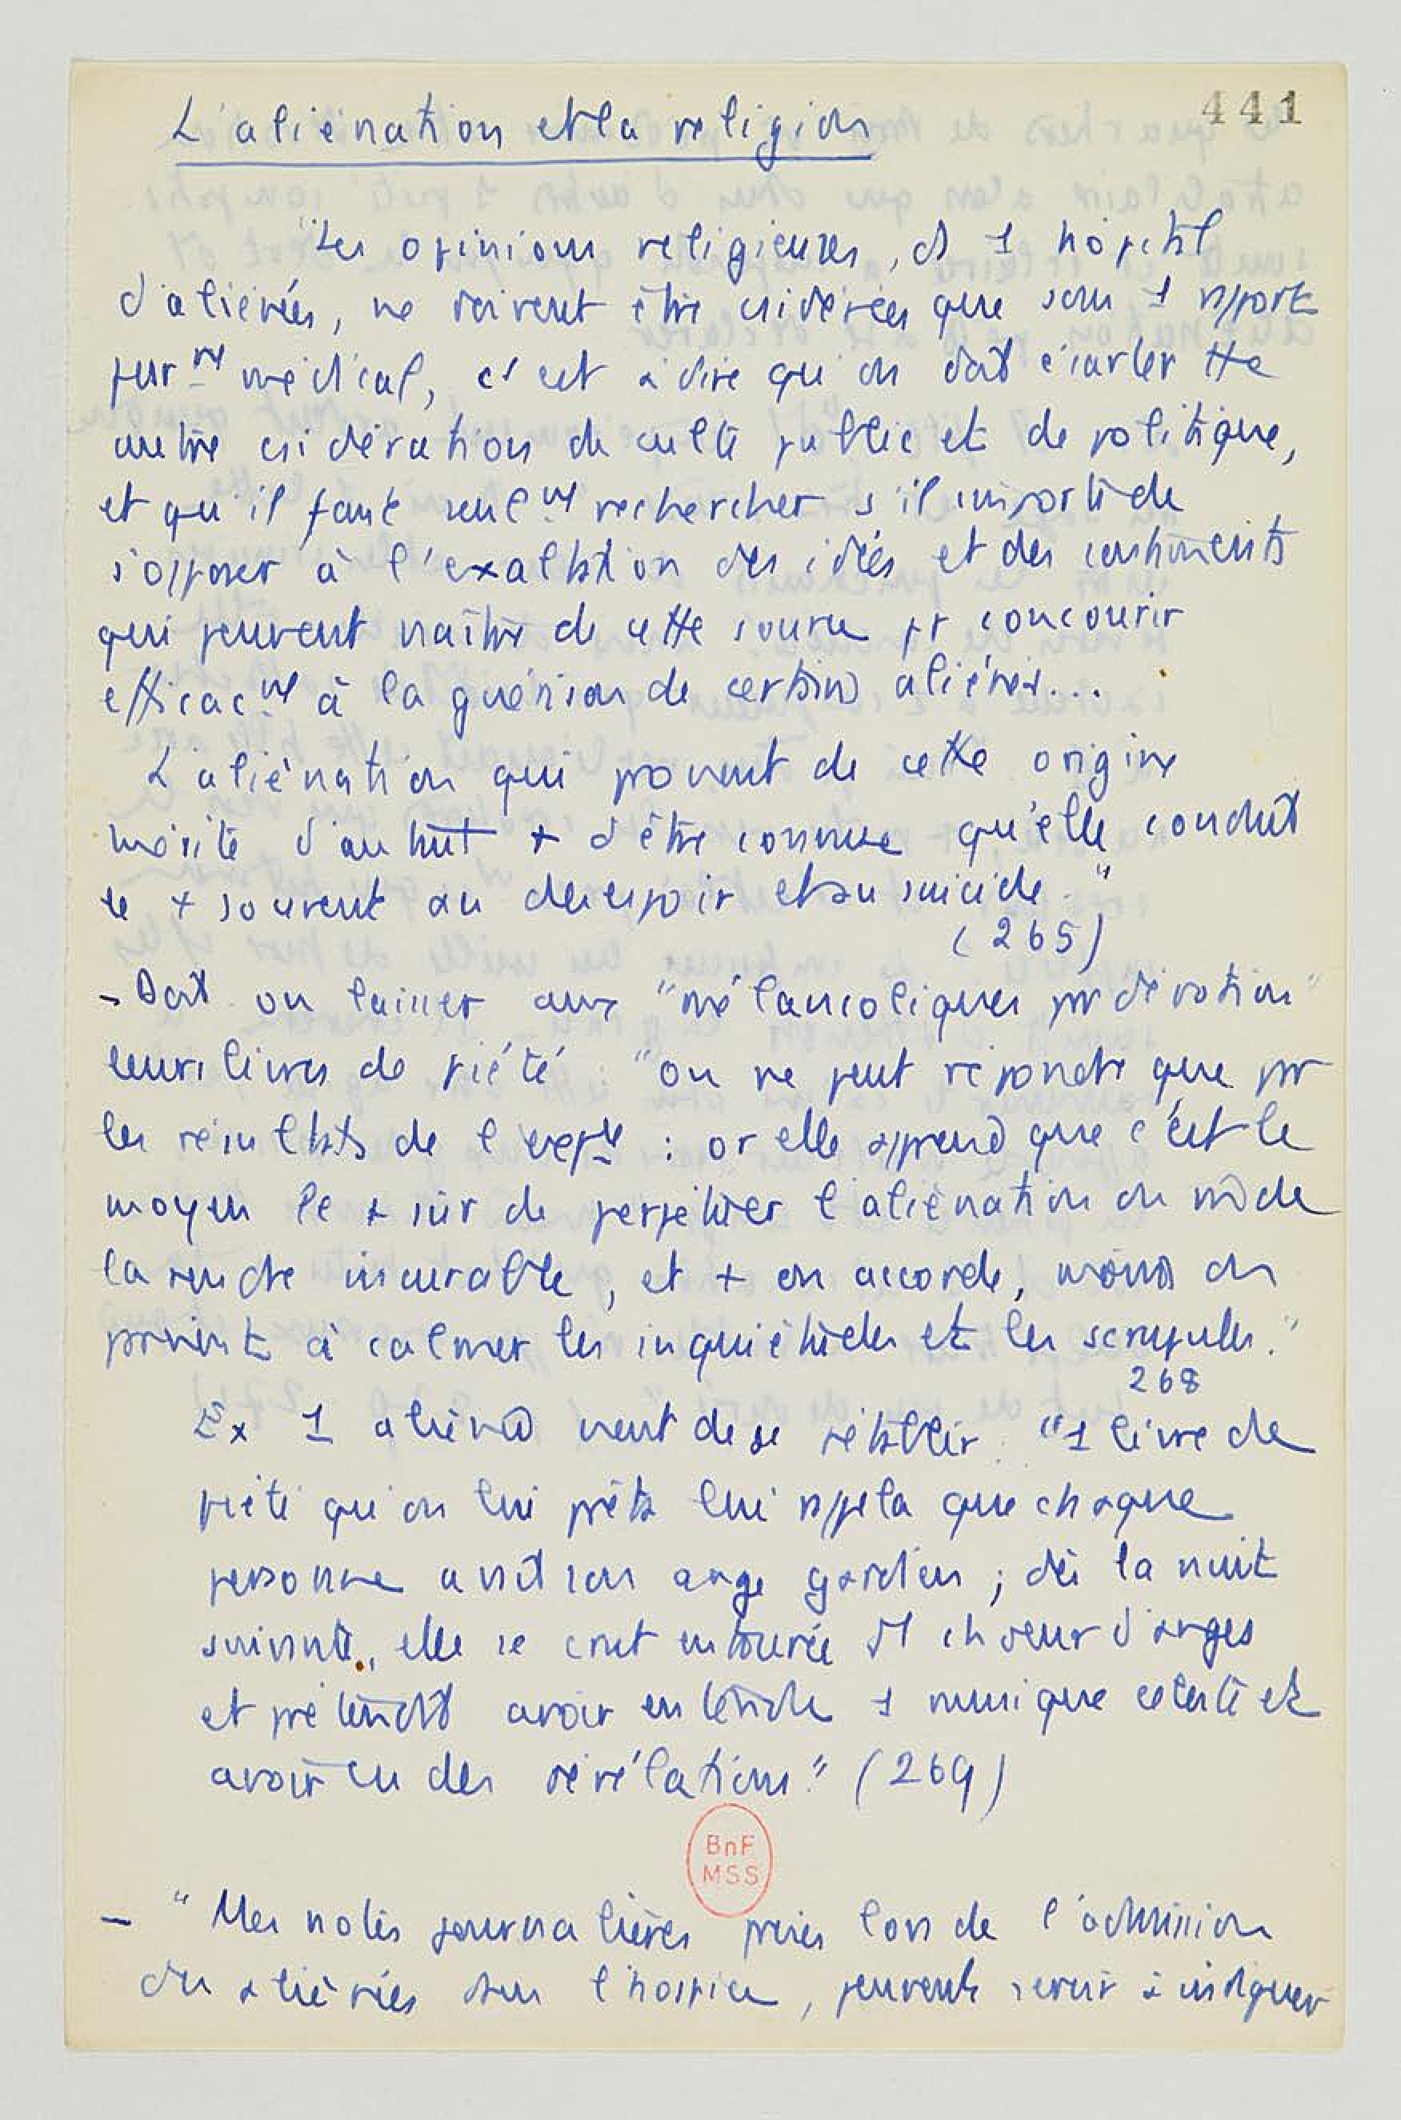 441
L'aliénation et la religion
"Les opinions religieuses, ds 1 hôpital
d'aliénés, ne doivent être csidérées que sous 1 rpport
purnt médical, c'est à dire qu'on doit écarter tte
autre csidération de culte public et de politique,
et qu'il faut seulnt rechercher s'il importe de
s'opposer à l'exaltation des idées et des sentiments
qui peuvent naître de cette source pr concourir
efficacnt à la guérison de certains aliénés...
L'aliénation qui provient de cette origine
mérite d'autant + d'être connue qu'elle conduit
le + souvent au désespoir et au suicide."
(265)
- Doit on laisser aux "mélancoliques pr dévotion"
leurs livres de piété : "on ne peut répondre que pr
les résultats de l'expce : or elle apprend que c'est le
moyen le + sûr de perpétuer l'aliénation ou m̂ de
la rendre incurable, et + on accorde, moins on
parvient à calmer les inquiétudes et les scrupules."
268
Ex 1 aliénée vient de se rétablir. "1 livre de
piété qu'on lui prêta lui rppela que chaque
personne avait son ange gardien ; dès la nuit
suivante, elle se crut entourée d'1 choeur d'anges
et prétendit avoir entendu 1 musique céleste et
avoir eu des révélations." (269)
BnF
MSS
- "Mes notes journalières prises lors de l'admission
des aliénés dans l'hospice, peuvent servir à indiquer